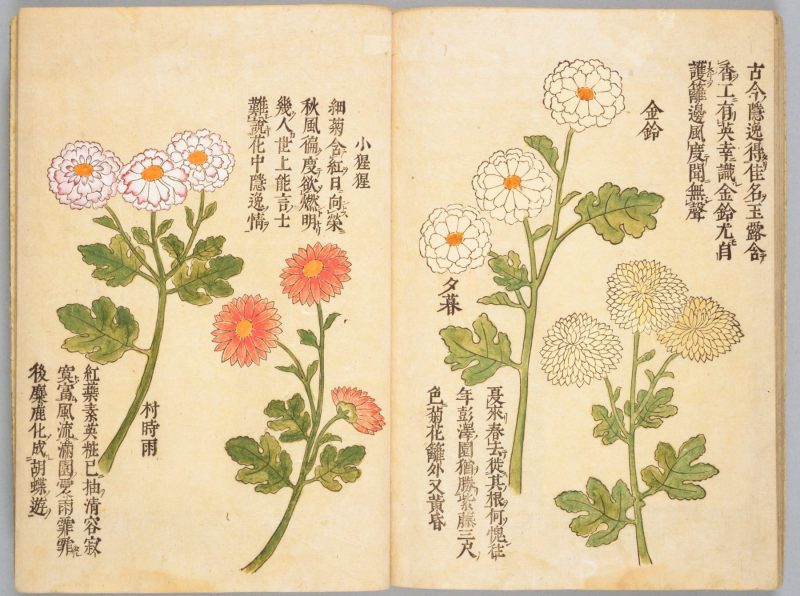 古今隱逸得佳名玉露含
香工有英幸識金鈴尤自
護籬邊風度聞無聲
金鈴
夕暮
夏來春去從其根何愧往
年彭澤園猶勝紫藤三尺
色菊花籬外又黃昏
小猩猩
細菊含紅日向榮
秋風徧度欲燃明
幾人世上能言士
難說花中隱逸情
村時雨
紅藥素英粧已抽清容寂
寞富風流滿園愛雨霏霏
後麋鹿化成胡蝶遊